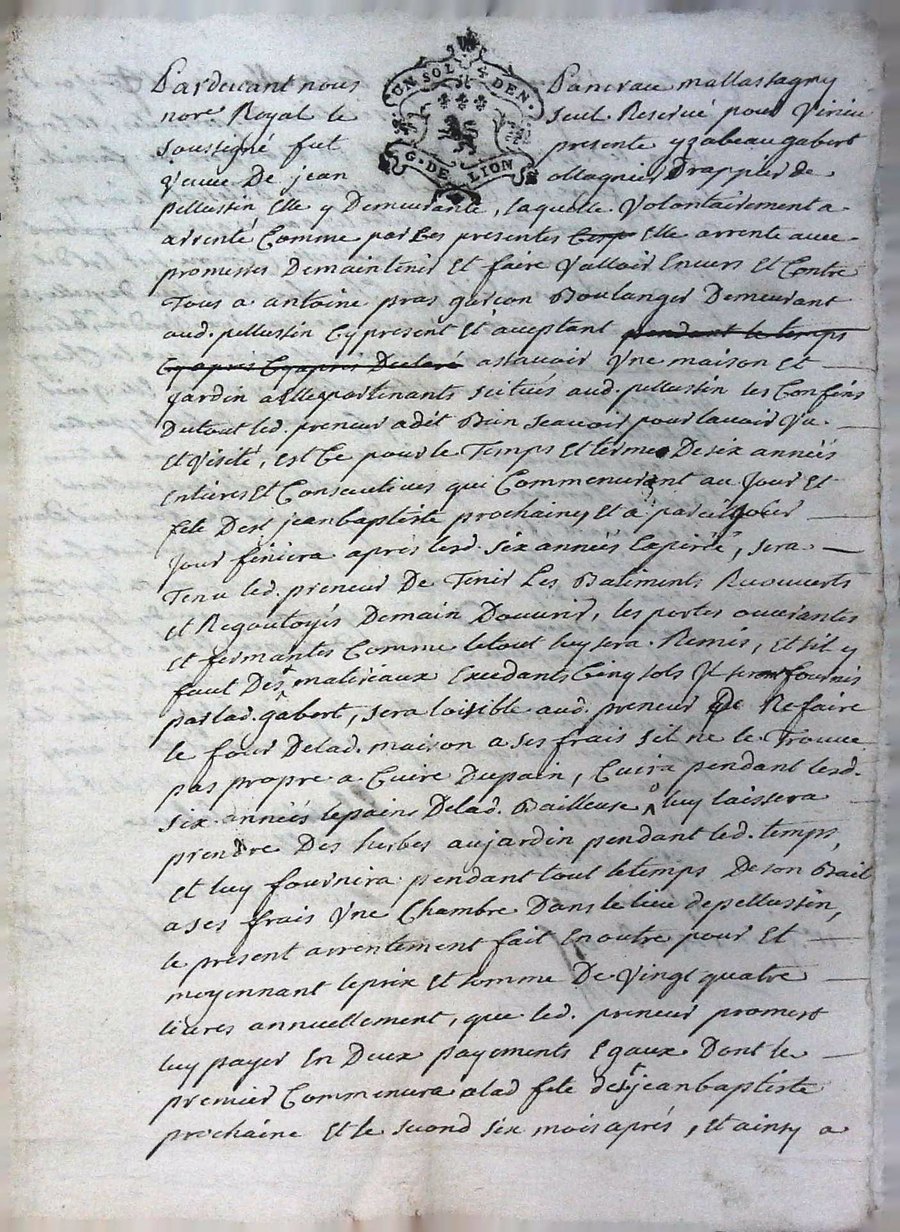 Pardevant nous Pancrace mallassagny
UN SOL 4 DEN.
G. DE LION
nore Royal le seul Reservé pour Virieu
soussigné fut presente yzabeau gabert
Veuue De jean ollagnier Drappier de
pellussin Elle y Demeurante, laquelle Volontairement a
arrenté Comme par Les presentes Elle arrente avec
promesses Demaintenir Et faire Valloir Envers Et Contre
Tous a antoine pras garçon Boulanger Demeurant
aud. pellussin Cy present Et acceptant pendant le temps
Cy apres Declaré assavoir Vne maison Et
jardin a Elle appartenants scitués aud. pellussin les Confins
Dutout led. preneur a dit Bien scavoir pour lavoir Vu
Et Visité, est Ce pour le Temps Et terme De six années
Entieres Et Consecutives qui Commenceront au Jour Et
fete De st jean baptiste prochaine, Et a pareil
Jour finiera apres lesd. six années Expirée, sera
Tenu led. preneur De Tenir Les Batiments Recouverts
et Regoutoyés Demain Douvrier, les portes ouvrantes
et fermantes Comme letout luy sera Remis, Et sil y
faut Des materiaux Excedants Cinq sols Jl seront fournis
par lad. gabert, sera loisible aud. preneur De Refaire
le four Delad. maison a ses frais sil ne le Trouve
pas propre a Cuire Dupain, Cuira pendant lesd.
six années lepains Delad. Bailleuse luy laissera
prendre Des herbes au jardin pendant led. temps,
et luy fournira pendant tout letemps De son Bail
a ses frais Vne Chambre Dans le lieu de pellussin,
le present arrentement fait En outre pour Et
moyennant leprix Et somme De Vingt quatre
livres annuellement, que led. preneur promest
luy payer En Deux payements Egaux Dont le
premier Commencera alad fete de st jean baptiste
prochaine Et le second six mois après, Et ainsy a